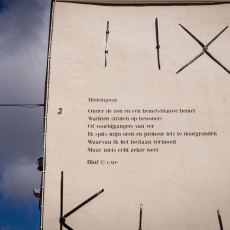 Hemingway
Onder de zon en een hemelsblauwe hemel
Wachten straten op bewoners
Of voorbijgangers van ver
Ik spits mijn oren en probeer iets te doorgronden
Waarvan ik het bestaan vermoed
Maar niets echt zeker weet
Bløf © UMP